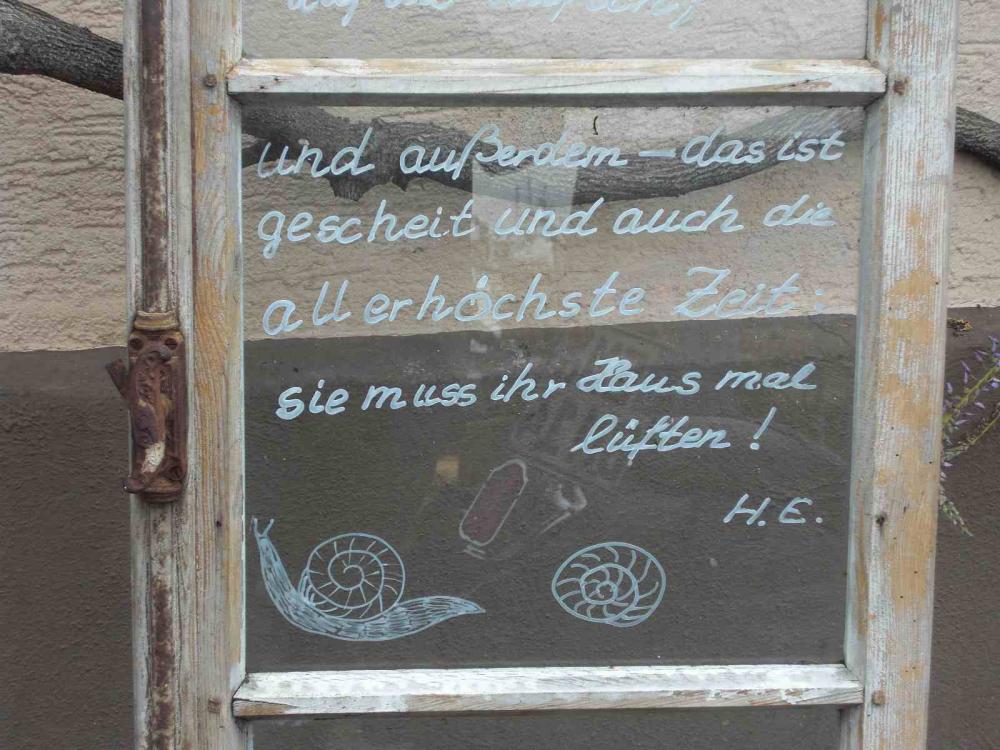 und außerdem – das ist
gescheit und auch die
allerhöchste Zeit:
sie muss ihr Haus mal
lüften!
H.E.